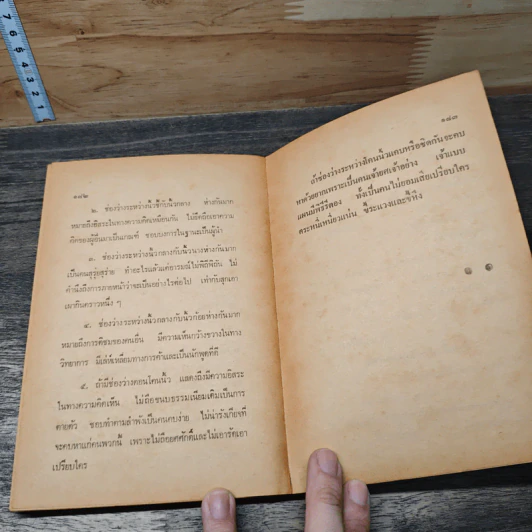 ๑๘๒
๒. ช่องว่างระหว่างนิ้วชี้กับนิ้วกลาง ห่างกันมาก
หมายถึงอิสระในทางความคิดเหมือนกัน ไม่ยึดถือเอาความ
คิดของผู้อื่นมาเป็นเกณฑ์ ชอบบงการในฐานะเป็นผู้นำ
๓. ช่องว่างระหว่างนิ้วกลางกับนิ้วนางห่างกันมาก
เป็นคนสุรุ่ยสุร่าย ทำอะไรแล้วแต่อารมณ์ไม่พิถีพิถัน ไม่
คำนึงถึงการภายหน้าว่าจะเป็นอย่างไรต่อไป เท่ากับสุกเอา
เผากินคราวหนึ่ง ๆ
๔. ช่องว่างระหว่างนิ้วกลางกับนิ้วก้อยห่างกันมาก
หมายถึงการติชมของคนอื่น มีความเห็นกว้างขวางในทาง
วิทยาการ มีเล่ห์เหลี่ยมทางการค้าและเป็นนักพูดที่ดี
๕. ถ้ามีช่องว่างตอนโคนนิ้ว แสดงถึงมีความอิสระ
ในทางความคิดเห็น ไม่ถือขนบธรรมเนียมเดิมเป็นการ
ตายตัว ชอบทำตามลำพังเป็นคนคบง่าย ไม่น่ารังเกียจที่
จะคบหาแก่คนพวกนี้ เพราะไม่ถือยศศักดิ์และไม่เอารัดเอา
เปรียบใคร
๑๘๓
ถ้าช่องว่างระหว่างโคนนิ้วแคบหรือชิดกันจะคบ
หาด้วยยากเพราะเป็นคนเจ้ายศเจ้าอย่าง เจ้าแบบ
แผนมีพิธีรีตอง ทั้งเป็นคนไม่ยอมเสียเปรียบใคร
ตระหนี่เหนียวแน่น ขี้ระแวงและขี้หึง